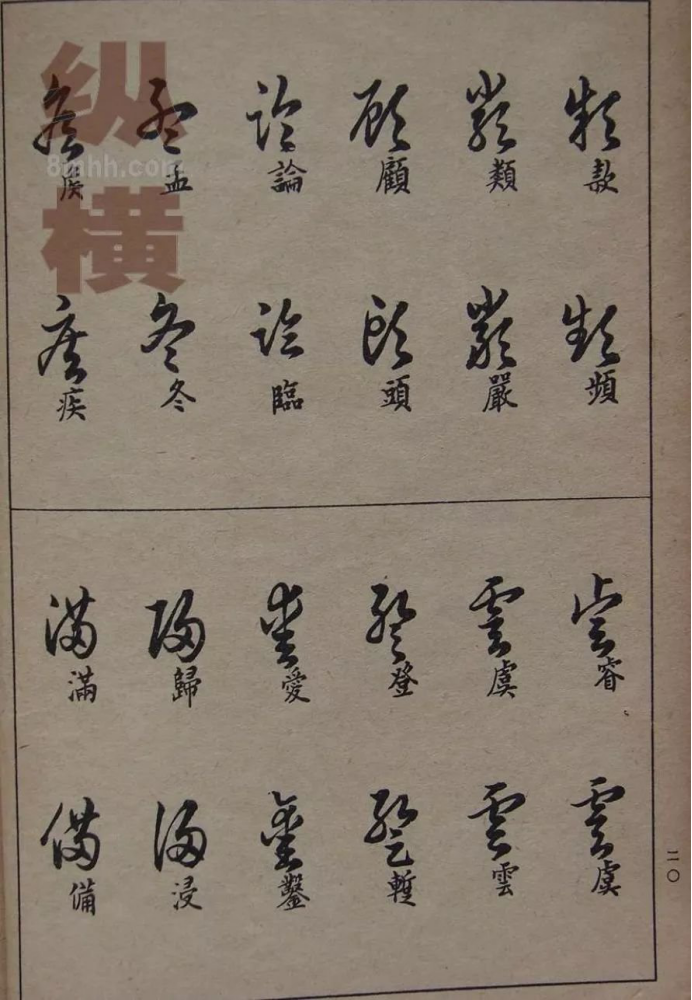 款
頻
類
嚴
顧
頭
論
臨
孟
冬
侯
疾
睿
虞
虞
雲
登
愛
鑿
歸
浸
滿
備
二〇
纵
8mhh.com
横